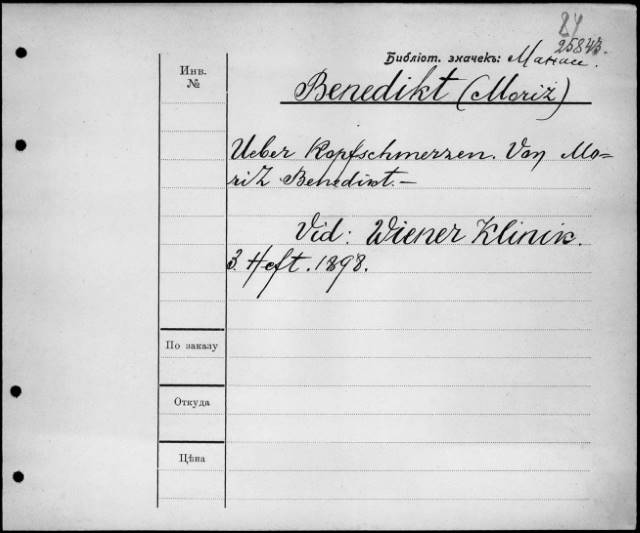 24
25843.
Библіот. значекъ: Манасс.
Инв.
№
Benedikt (Moriz)
Ueber Kopfschmerzen. Von Mo=
riz Benedikt. —
Vid: Wiener Klinik.
3 Heft. 1898.
По заказу
Откуда
Цѣна